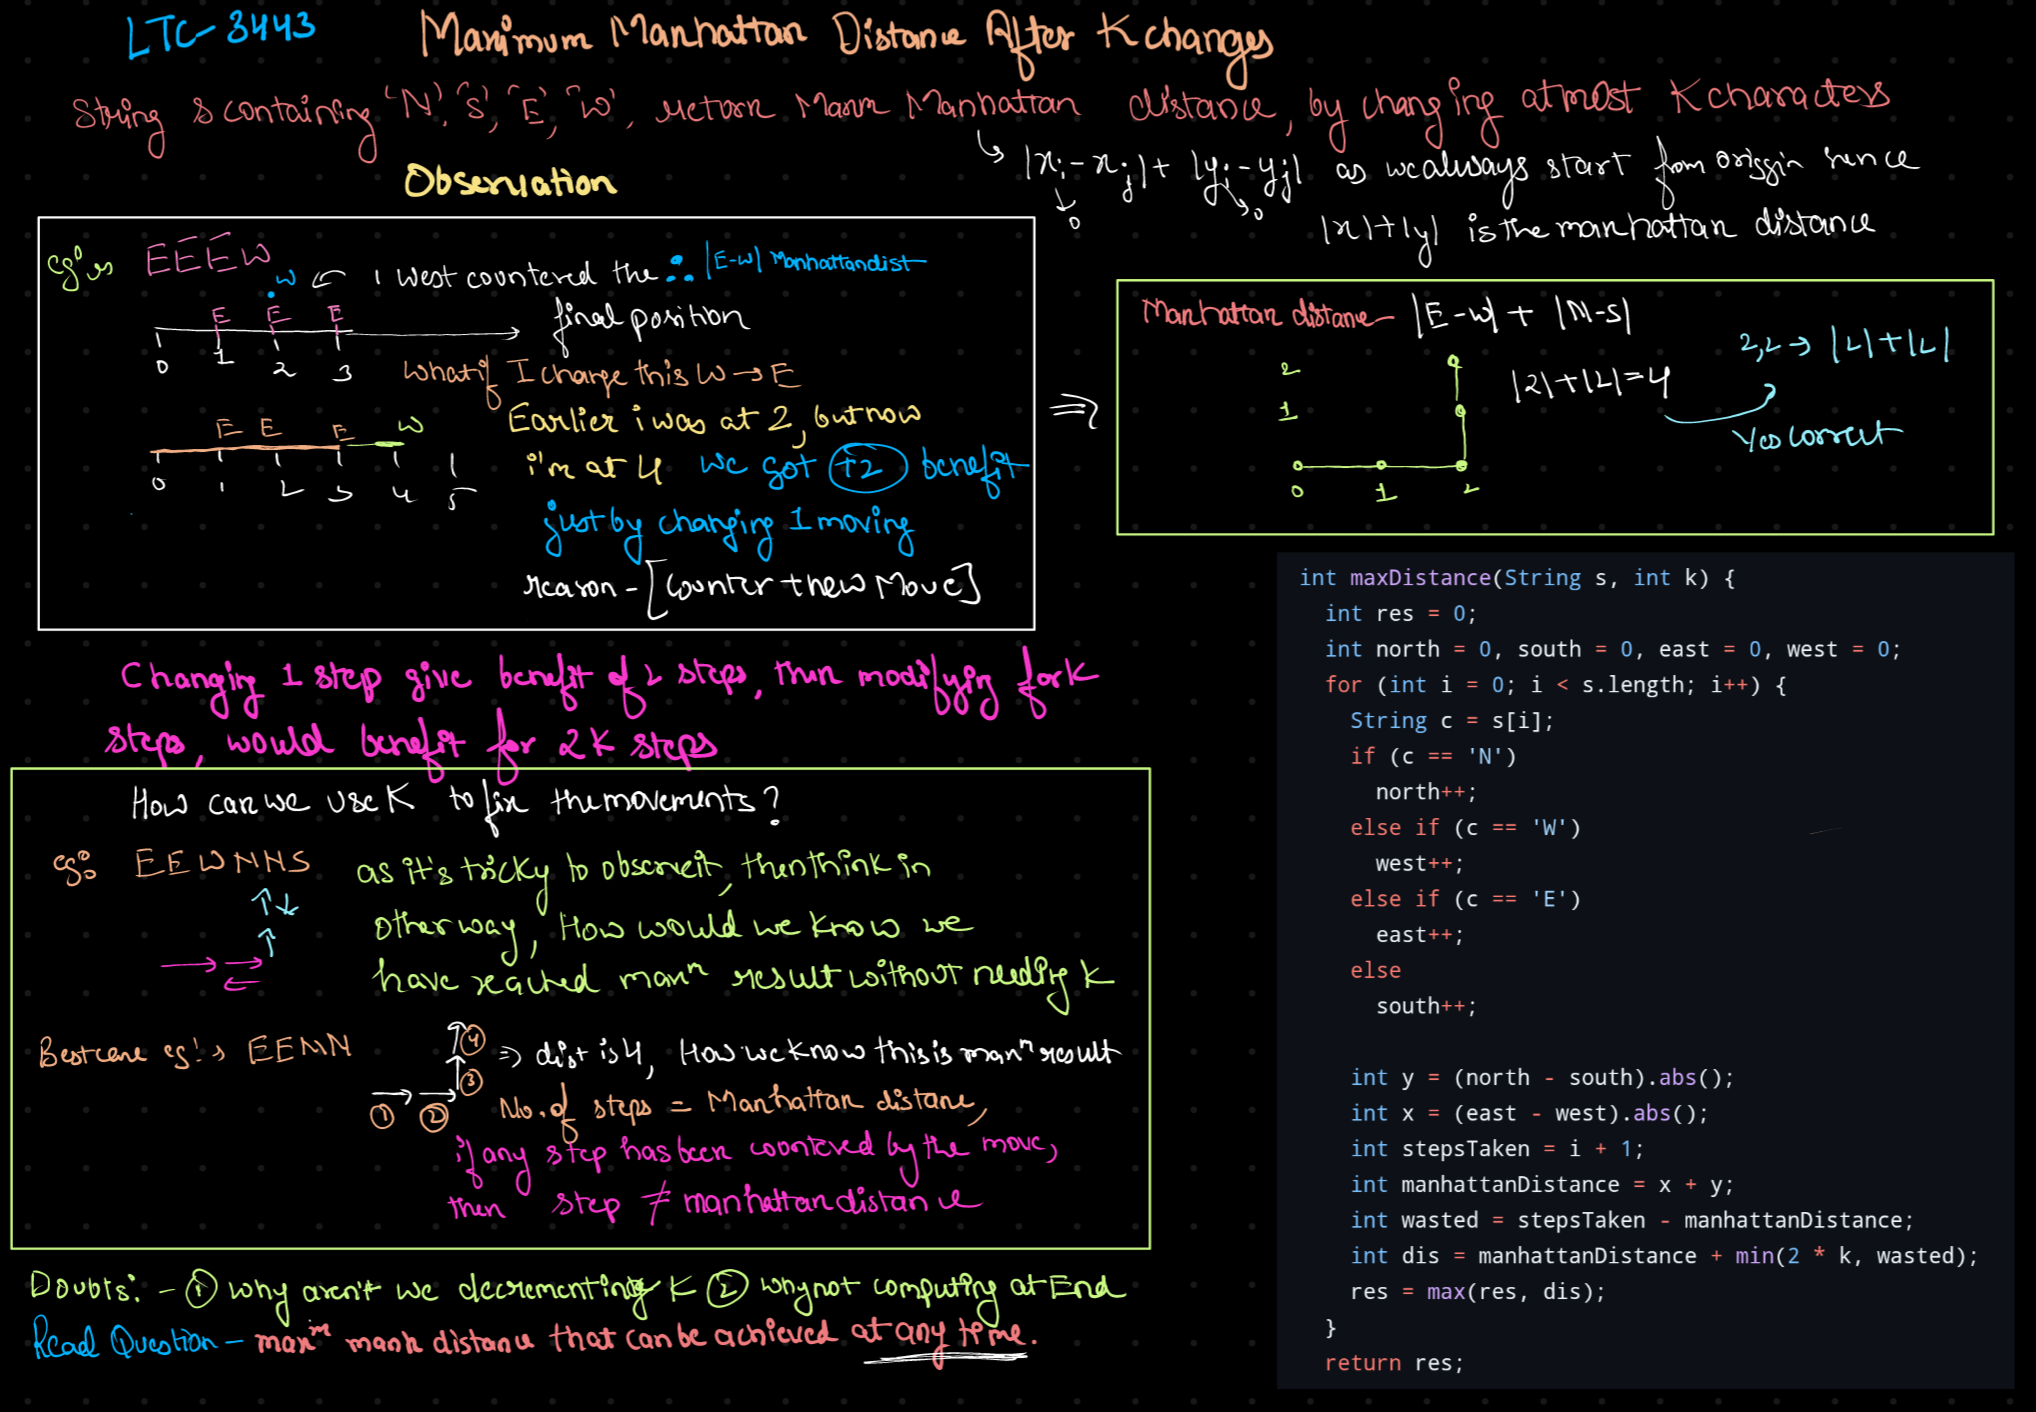 LTC-3443 Maximum Manhattan Distance After K changes
String s containing 'N', 'S', 'E', 'W', return Maxm Manhattan distance, by changing atmost K characters
↳ |xi - xj| + |yi - yj| as we always start from origgin hence
0 0
|x|+|y| is the manhattan distance
Observation
eg: → EEEW
W ← 1 West countered the ∴ |E-W| Manhattandist
E E E final position
0 1 2 3
what if I change this W → E
E E E W
0 1 2 3 4 5
Earlier i was at 2, but now
i'm at 4 we got +2 benefit
just by changing 1 moving
reason - [Counter + new Move]
⇒
Manhattan distance - |E-W| + |N-S|
2,2 → |2|+|2|
|2|+|2|=4
Yes correct
2
1
0 1 2
Changing 1 step give benefit of 2 steps, then modifying for K
steps, would benefit for 2K steps
How can we use K to fix the movements?
eg: EEWNNS
as it's tricky to observe it, then think in
other way, How would we know we
have reached maxm result without needing K
Best case eg: → EENN
① ② ③ ④
⇒ dist is 4, How we know this is maxm result
No. of steps = Manhattan distane,
if any step has been countered by the move,
then step ≠ manhattan distance
Doubts: - ① why aren't we decrementing K ② why not computing at End
Read Question - maxm manh distance that can be achieved at any time.
int maxDistance(String s, int k) {
int res = 0;
int north = 0, south = 0, east = 0, west = 0;
for (int i = 0; i < s.length; i++) {
String c = s[i];
if (c == 'N')
north++;
else if (c == 'W')
west++;
else if (c == 'E')
east++;
else
south++;
int y = (north - south).abs();
int x = (east - west).abs();
int stepsTaken = i + 1;
int manhattanDistance = x + y;
int wasted = stepsTaken - manhattanDistance;
int dis = manhattanDistance + min(2 * k, wasted);
res = max(res, dis);
}
return res;